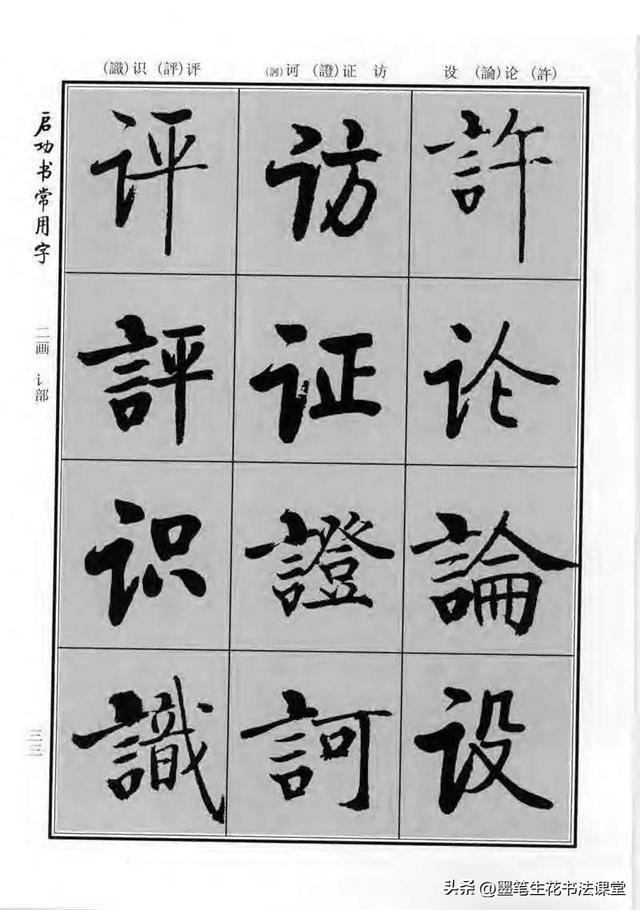 (識)识 (評)评 (訶)诃 (證)证 访 设 (論)论 (許)
許论論设
访证證訶
评評识識
启功书常用字
二画 讠部
三三
头条 @墨笔生花书法课堂